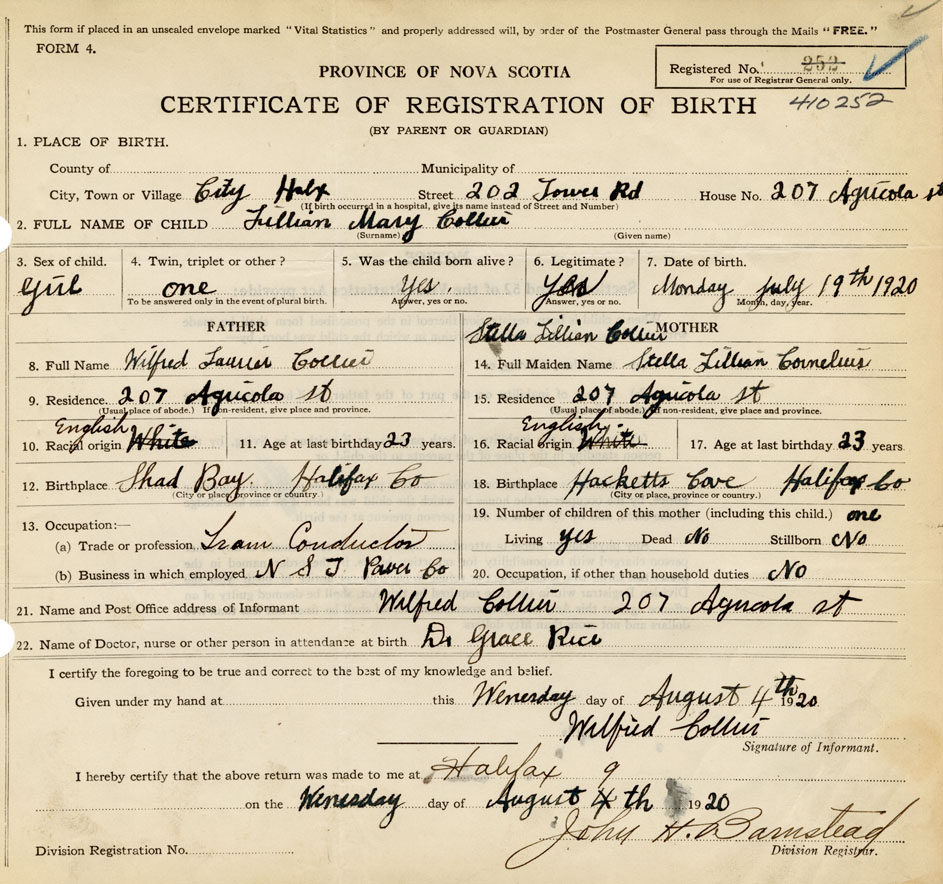 This form if placed in an unsealed envelope marked "Vital Statistics" and properly addressed will, by order of the Postmaster General pass through the Mails "FREE."
FORM 4.
PROVINCE OF NOVA SCOTIA
Registered No. 252
For use of Registrar General only.
CERTIFICATE OF REGISTRATION OF BIRTH 410252
(BY PARENT OR GUARDIAN)
1. PLACE OF BIRTH.
County of Municipality of
City, Town or Village City Halx Street 202 Tower Rd House No. 207 Agricola st
(If birth occurred in a hospital, give its name instead of Street and Number)
2. FULL NAME OF CHILD Lillian Mary Collier
(Surname) (Given name)
3. Sex of child. 4. Twin, triplet or other? 5. Was the child born alive? 6. Legitimate? 7. Date of birth.
Girl one Yes. Yes Monday july 19th 1920
To be answered only in the event of plural birth. Answer, yes or no. Answer, yes or no. Month, day, year.
FATHER Stella Lillian Collier MOTHER
8. Full Name Wilfred Laurier Collier 14. Full Maiden Name Stella Lillian Cornelius
9. Residence. 207 Agricola st 15. Residence 207 Agricola st
(Usual place of abode.) If non-resident, give place and province. (Usual place of abode.) If non-resident, give place and province.
English English.
10. Racial origin White 11. Age at last birthday 23 years. 16. Racial origin White 17. Age at last birthday 23 years
12. Birthplace Shad Bay. Halifax Co 18. Birthplace Hacketts Cove Halifax Co
(City or place, province or country.) (City or place, province or country.)
13. Occupation:— 19. Number of children of this mother (including this child.) one
(a) Trade or profession Tram Conductor Living yes Dead No Stillborn No
(b) Business in which employed N S T Power Co 20. Occupation, if other than household duties No
21. Name and Post Office address of Informant Wilfred Collier 207 Agricola st
22. Name of Doctor, nurse or other person in attendance at birth Dr Grace Rice
I certify the foregoing to be true and correct to the best of my knowledge and belief.
Given under my hand at this Wenesday day of August 4th 1920
Wilfred Collier
Signature of Informant.
I hereby certify that the above return was made to me at Halifax 9
on the Wenesday day of August 4 th 1920
John H. Barnstead
Division Registration No. Division Registrar.